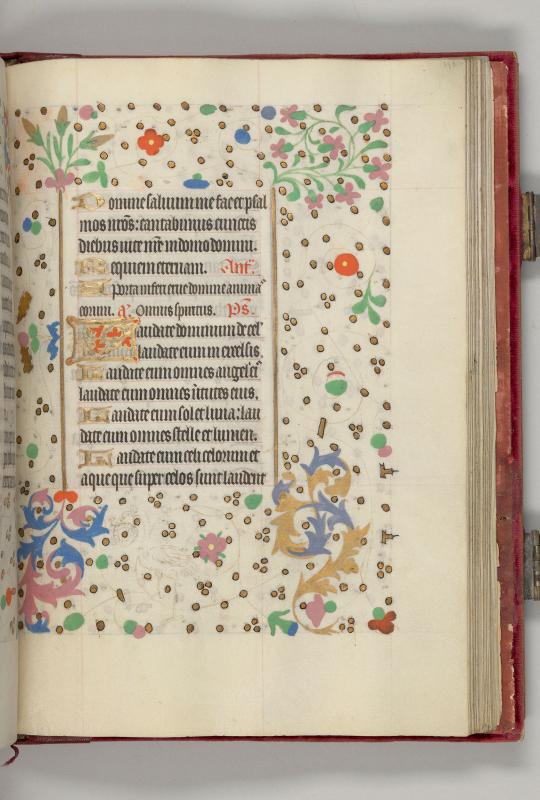 Domine salvum me fac et psal
mos nr̃os: cantabimus cunctis
diebus vite nr̃e in domo domini.
Requiem eternam. Ant̃.
A porta inferi erue domine anima
eorum. a. Omnis spiritus. p̃s.
Laudate dominum de cel̃
laudate eum in excelsis.
Laudate eum omnes angeli ei
laudate eum omnes v̾tutes eius.
Laudate eum sol et luna: lau
date eum omnes stelle et lumen.
Laudate eum celi celorum et
aque que super celos sunt laudent